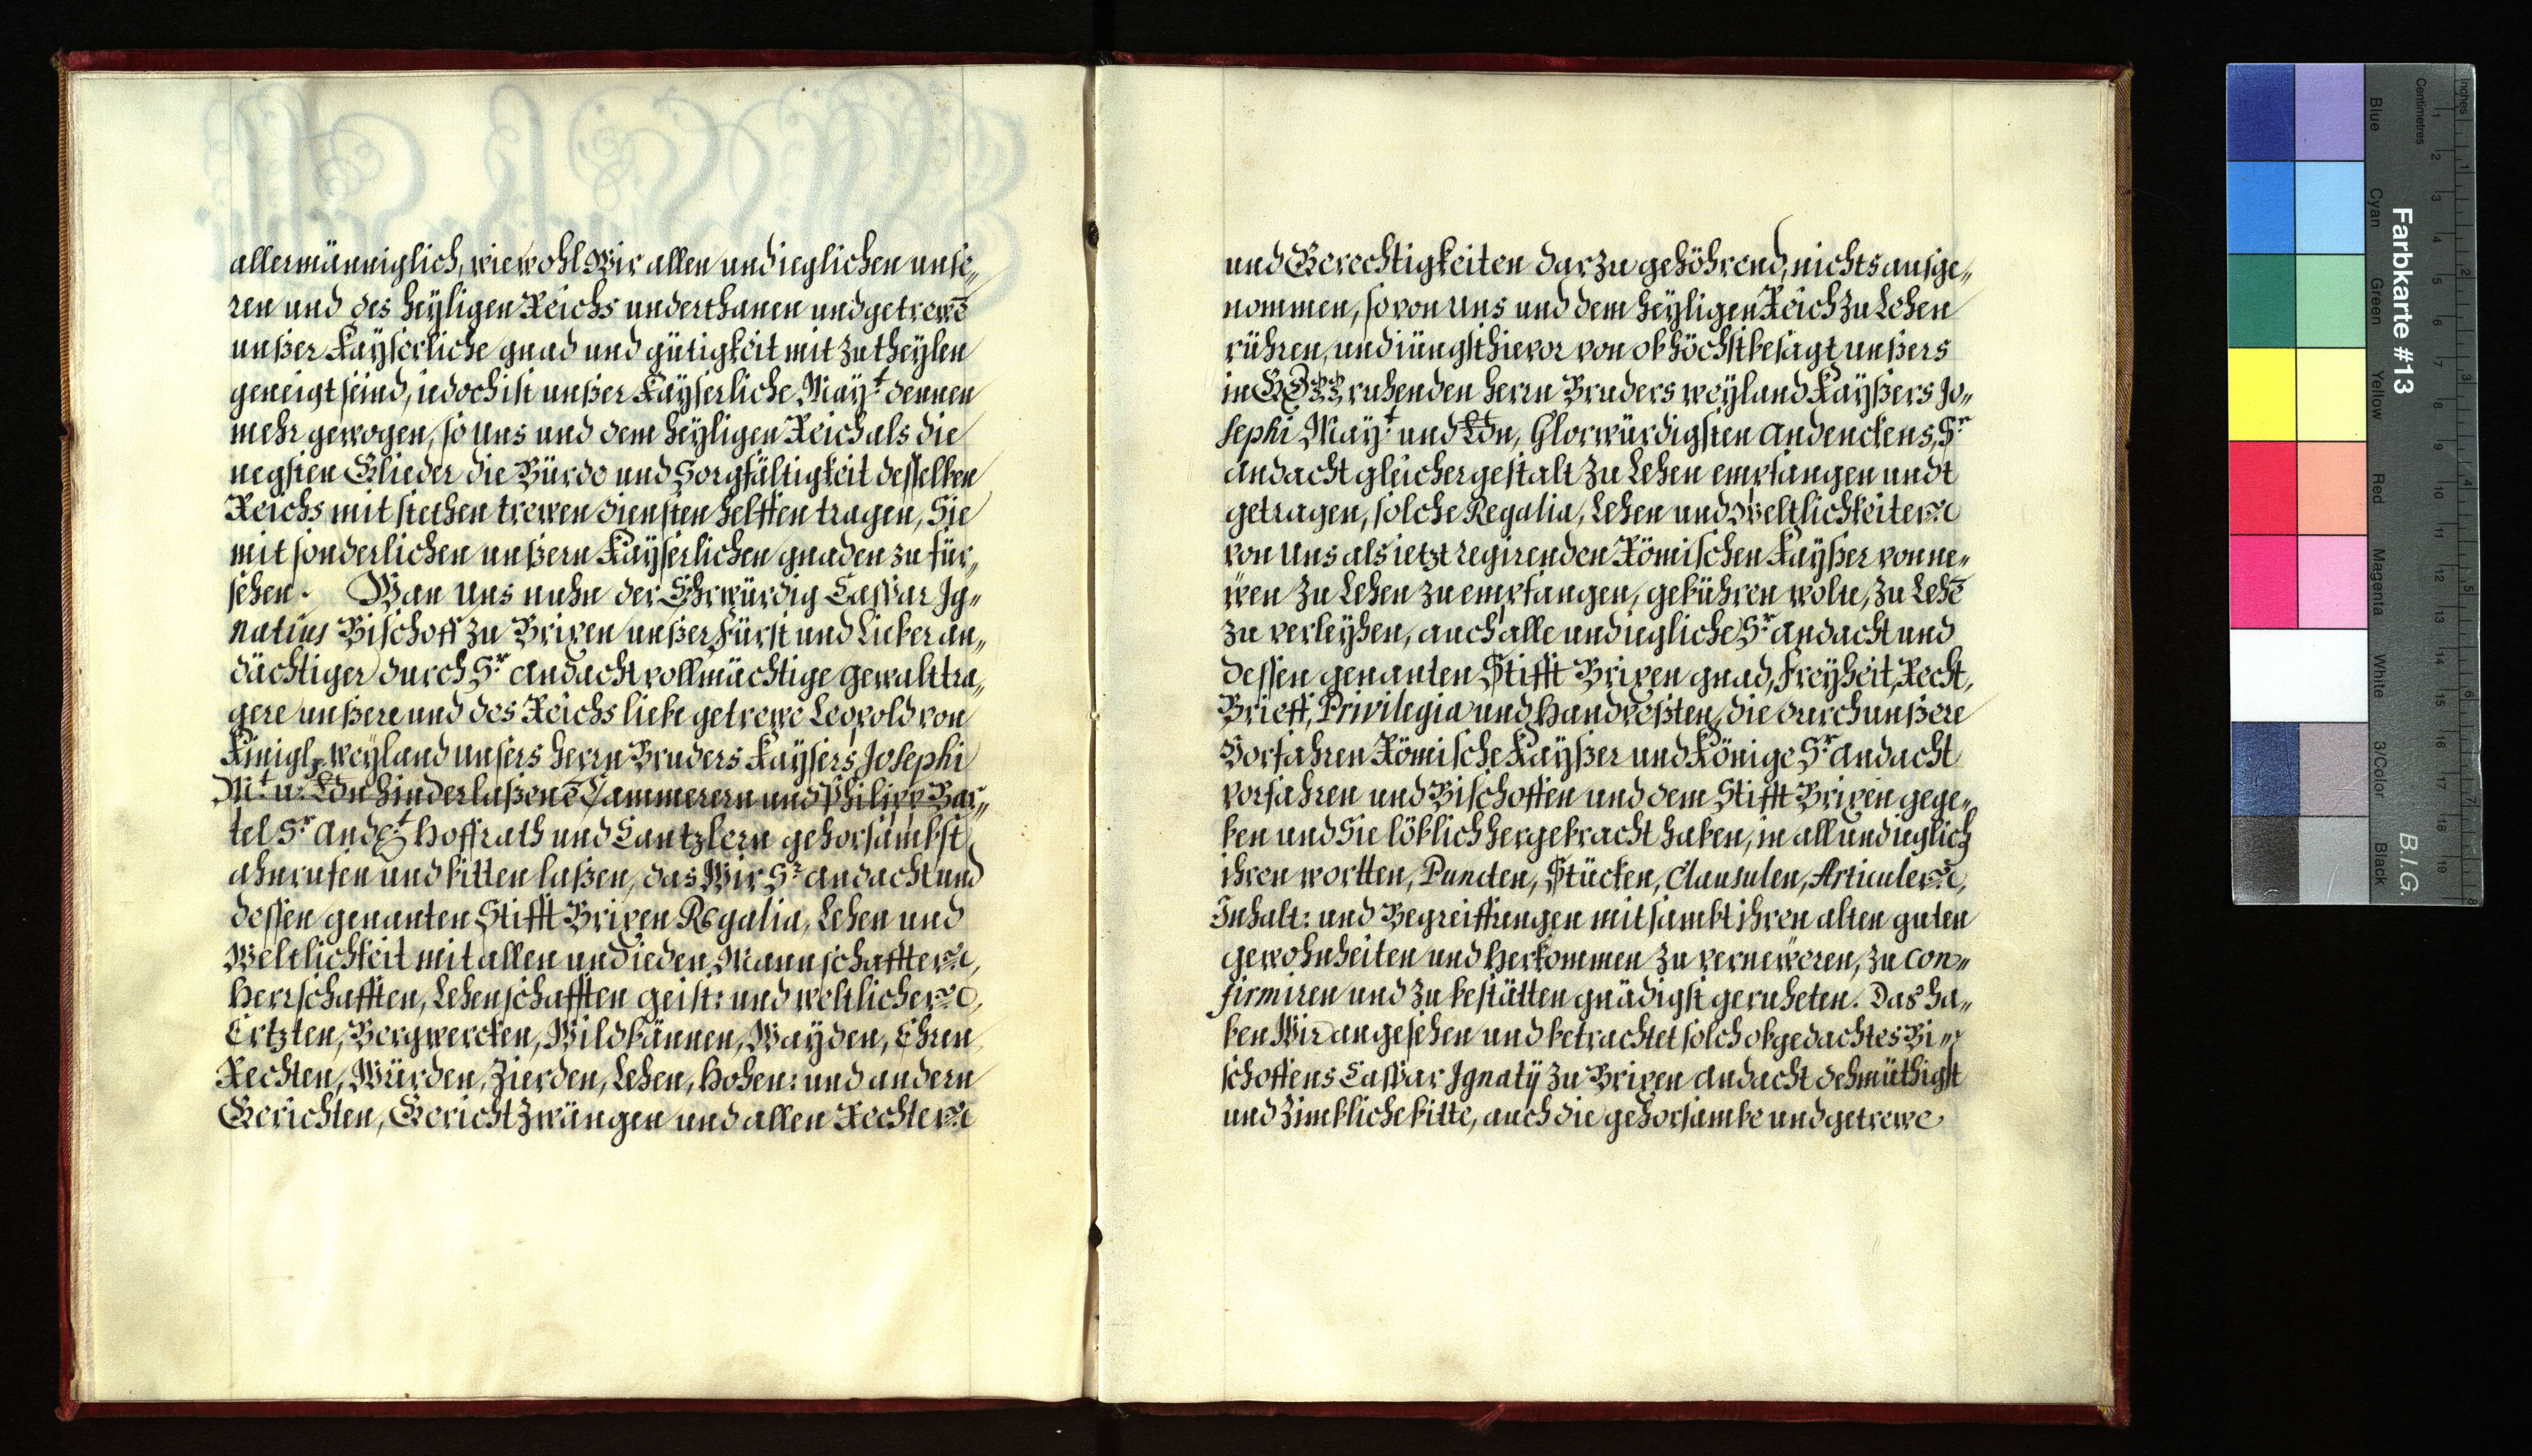 allermänniglich, wiewohl Wir allen und ieglichen unse„
ren und des heyligen Reichs underthanen und getrewē
unßer Kayserliche gnad und gütigkeit mit zu theylen
geneigt seind, iedoch ist unßer Kayserliche Mayt. dennen
mehr gewogen, so Uns und dem heyligen Reich als die
negsten Glieder die Bürde und Sorgfältigkeit desselben
Reichs mit stethen trewen diensten helffen tragen, Sie
mit sonderlichen unßern Kayserlichen gnaden zu für„
sehen. Wan Uns nuhn der Ehrwürdig Caspar Ig„
natius Bischoff zu Brixen unßer Fürst und Lieber an„
dächtiger durch Sr. andacht vollmächtige gewalttra„
gere unßere und des Reichs liebe getrewe Leopold von
Künigl, weyland unsers herrn Bruders Kaysers Josephi
Mt. u: Ldn hinderlaßenē Cammerern und Philipp Bar„
tel Sr. Andt. Hoffrath und Cantzlern gehorsambst
ahnrufen und bitten laßen, das Wir Sr. andacht und
dessen genanten Stifft Brixen Regalia, Lehen und
Weltlichkeit mit allen und ieden Mannschafften,
Herrschafften, Lehenschafften geist: und weltlichen,
Ertzten, Bergwercken, Wildbännen, Wayden, Ehren
Rechten, Würden, Zierden, Lehen, Hohen: und andern
Gerichten, Gericht Zwängen und allen Rechten
und Gerechtigkeiten darzu gehöhrend, nichts ausge„
nommen, so von Uns und dem heyligen Reich zu Lehen
rühren, und iüngsthievor von obhöchstbesagt unßers
in GOTT ruhenden herrn Bruders weyland Kayßers Jo„
sephi Mayt. und Ldn, Glorwürdigsten andenckens, Sr.
andacht gleichergestalt zu Lehen empfangen undt
getragen, solche Regalia, Lehen und Weltlichkeiten
von Uns als ietzt regirenden Römischen Kayßer von ne„
wen zu Lehen zu empfangen, gebühren woln, zu Lehē
zu verleyhen, auch alle und iegliche Sr. andacht und
dessen genanten Stifft Brixen gnad, Freyheit, Recht,
Brieff, Privilegia und Handvesten, die durch unßere
Vorfahren Römische Kayßer und Könige Sr. andacht
vorfahren und Bischoffen und dem Stifft Brixen gege„
ben und Sie löblich hergebracht haben, in all und ieglich
ihren wortten, Puncten, Stücken, Clausulen, Articulen,
Inhalt: und Begreiffungen mit sambt ihren alten guten
gewohnheiten und herkommen zu vernewren, zu con„
firmiren und zu bestätten gnädigst geruheten. Das ha„
ben Wir angesehen und betrachtet solch obgedachtes Bi„
schoffens Caspar Ignatÿ zu Brixen andacht dehmüthigst
und zimbliche bitte, auch die gehorsambe und getrewe